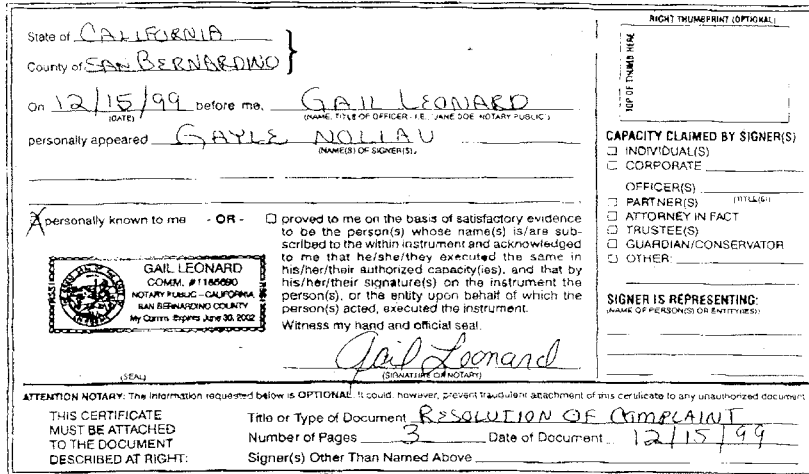 State of CALIFORNIA
County of SAN BERNARDINO
On 12/15/99 before me, GAIL LEONARD
(DATE) (NAME, TITLE OF OFFICER - I.E., "JANE DOE, NOTARY PUBLIC")
personally appeared GAYLE NOLLAU
(NAME(S) OF SIGNER(S))
X personally known to me - OR - ☐ proved to me on the basis of satisfactory evidence
to be the person(s) whose name(s) is/are sub-
scribed to the within instrument and acknowledged
to me that he/she/they executed the same in
his/her/their authorized capacity(ies), and that by
his/her/their signature(s) on the instrument the
person(s), or the entity upon behalf of which the
person(s) acted, executed the instrument.
GAIL LEONARD
COMM. #1185690
NOTARY PUBLIC - CALIFORNIA
SAN BERNARDINO COUNTY
My Comm. Expires June 30, 2002
Witness my hand and official seal.
Gail Leonard
(SEAL) (SIGNATURE OF NOTARY)
RIGHT THUMBPRINT (OPTIONAL)
TOP OF THUMB HERE
CAPACITY CLAIMED BY SIGNER(S)
☐ INDIVIDUAL(S)
☐ CORPORATE
OFFICER(S)
(TITLE(S))
☐ PARTNER(S)
☐ ATTORNEY IN FACT
☐ TRUSTEE(S)
☐ GUARDIAN/CONSERVATOR
☐ OTHER:
SIGNER IS REPRESENTING:
(NAME OF PERSON(S) OR ENTITY(IES))
ATTENTION NOTARY: The information requested below is OPTIONAL. It could, however, prevent fraudulent attachment of this certificate to any unauthorized document
THIS CERTIFICATE
MUST BE ATTACHED
TO THE DOCUMENT
DESCRIBED AT RIGHT:
Title or Type of Document RESOLUTION OF COMPLAINT
Number of Pages 3 Date of Document 12/15/99
Signer(s) Other Than Named Above